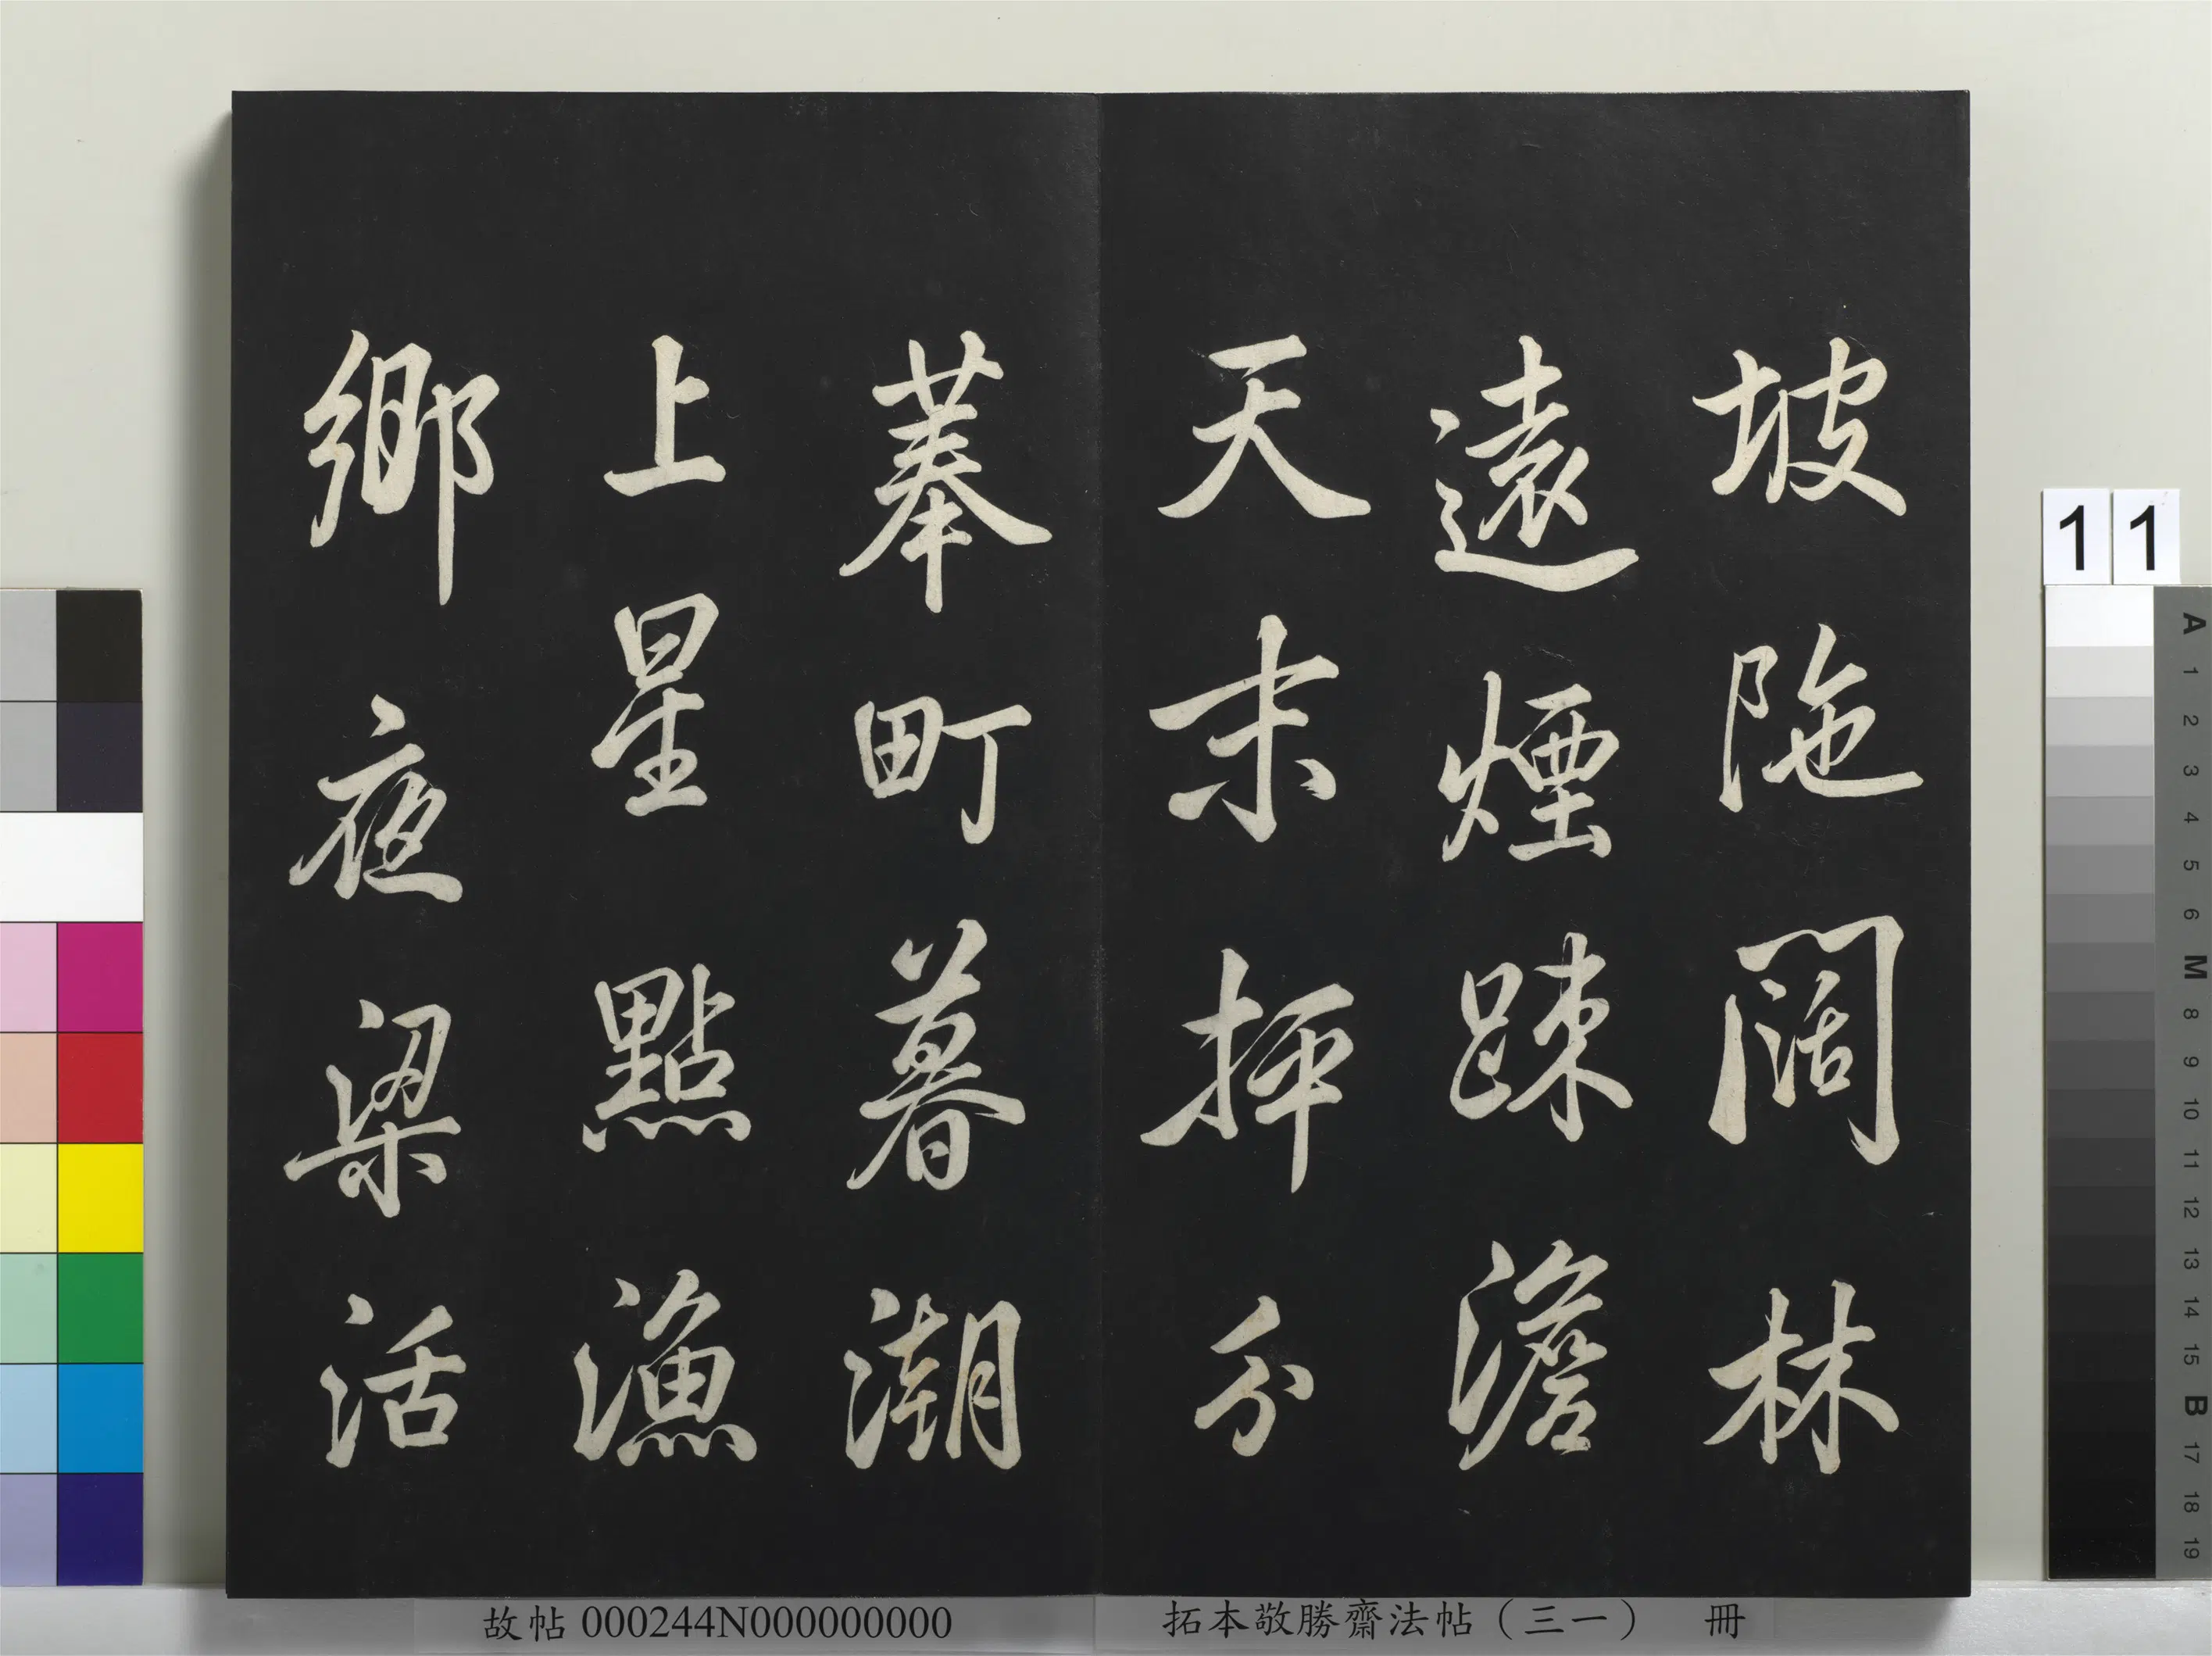 坡陁闊林
遠煙踈澹
天末抨分
菶町暮潮
上星點漁
鄉夜梁活
11
A 1 2 3 4 5 6 M 8 9 10 11 12 13 14 15 B 17 18 19
故帖 000244N000000000
拓本敬勝齋法帖（三一） 冊